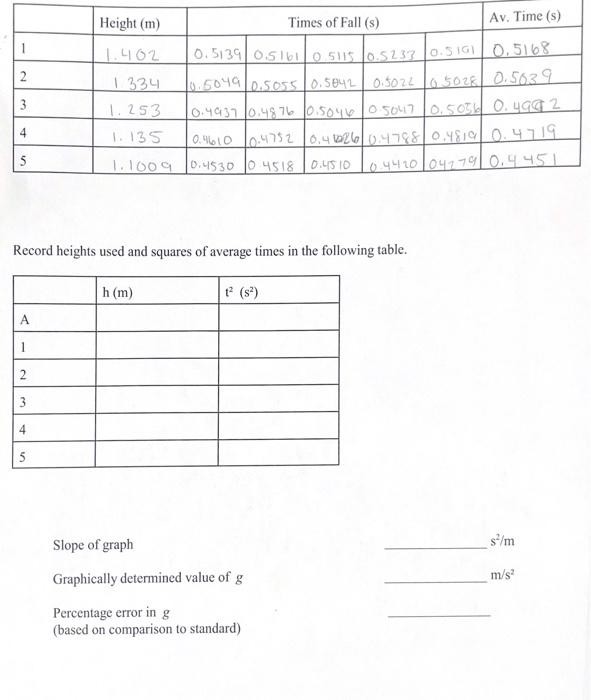 Height (m) Times of Fall (s) Av. Time (s)
1 1.402 0.5139 0.5161 0.5115 0.5233 0.5191 0.5168
2 1.334 0.5049 0.5055 0.5042 0.5022 0.5028 0.5039
3 1.253 0.4937 0.4876 0.5046 0.5047 0.5056 0.4992
4 1.135 0.4610 0.4752 0.4788 0.4819 0.4719
5 1.1009 0.4530 0.4518 0.4510 0.4420 0.4279 0.4451
Record heights used and squares of average times in the following table.
h (m) t² (s²)
A
1
2
3
4
5
Slope of graph s²/m
Graphically determined value of g m/s²
Percentage error in g
(based on comparison to standard)